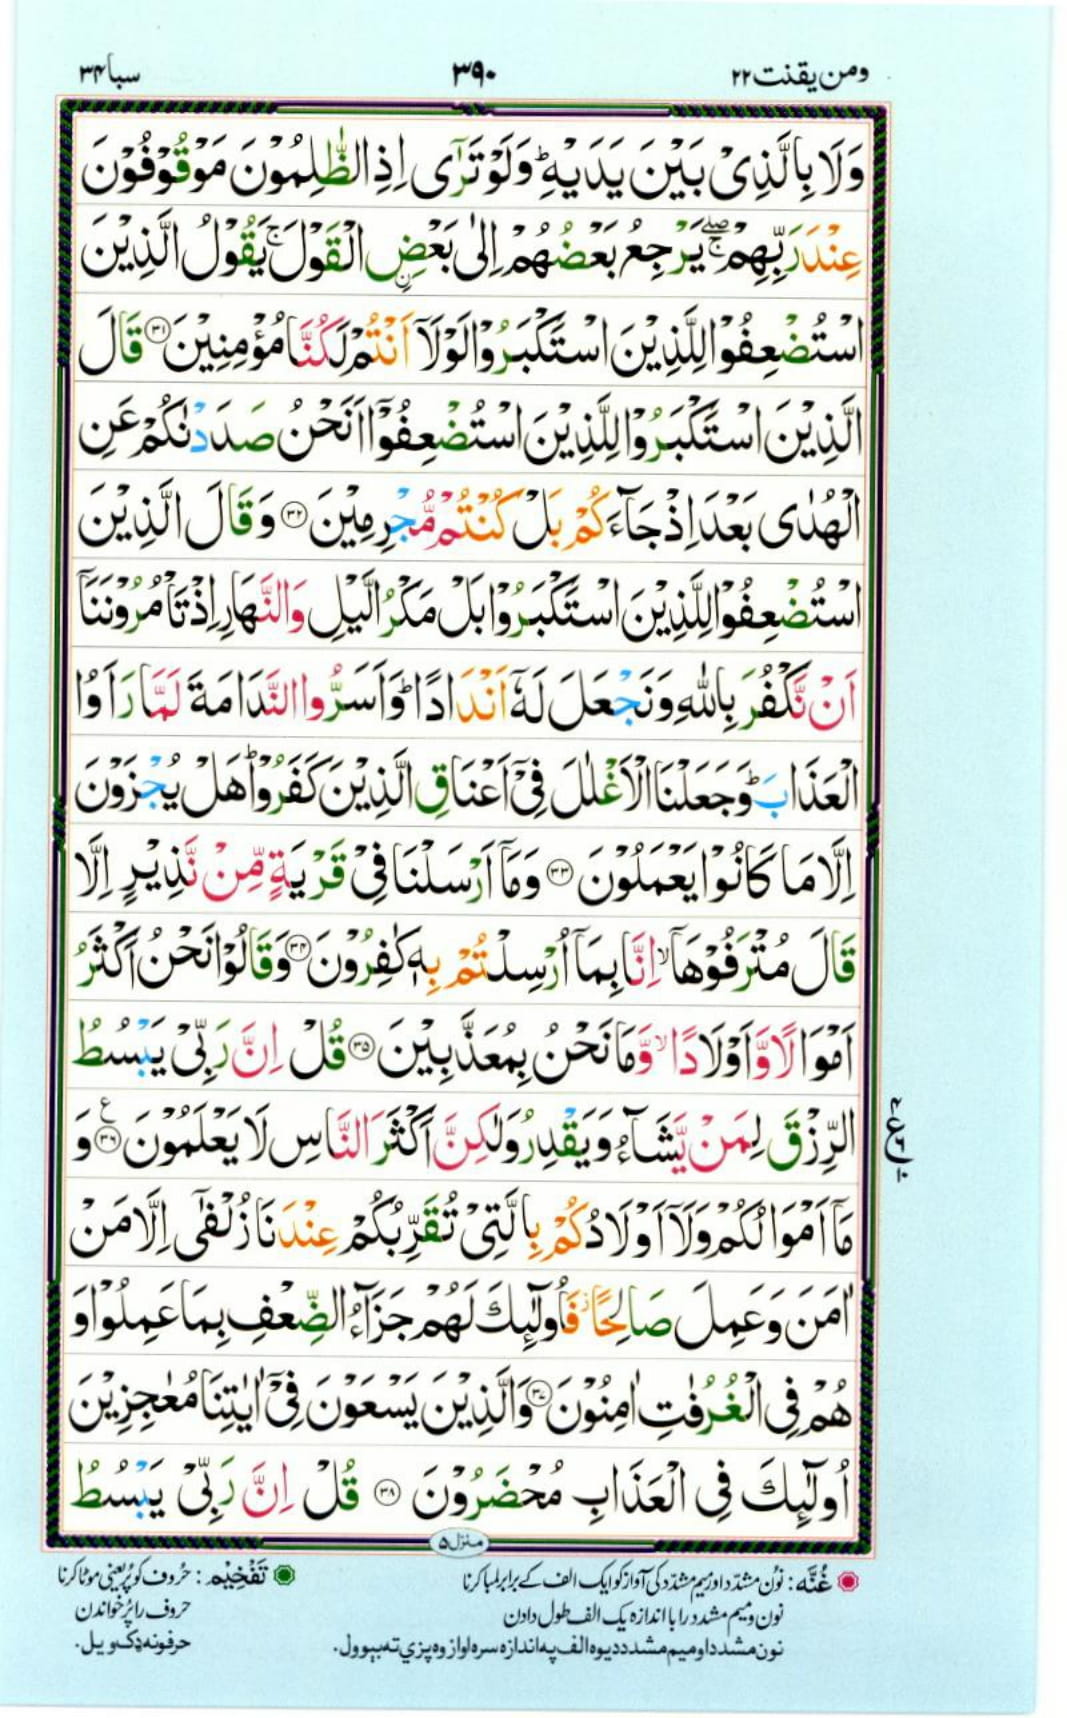 ومن یقنت ۲۲
۳۹۰
سبا ۳۴
وَلَا بِالَّذِیْ بَیْنَ یَدَیْهِؕ وَلَوْ تَرٰۤی اِذِ الظّٰلِمُوْنَ مَوْقُوْفُوْنَ
عِنْدَ رَبِّهِمْ ۚۖ یَرْجِعُ بَعْضُهُمْ اِلٰی بَعْضِ ِ۟الْقَوْلَ ۚ یَقُوْلُ الَّذِیْنَ
اسْتُضْعِفُوْا لِلَّذِیْنَ اسْتَكْبَرُوْا لَوْلَاۤ اَنْتُمْ لَكُنَّا مُؤْمِنِیْنَ ﴿۳۱﴾ قَالَ
الَّذِیْنَ اسْتَكْبَرُوْا لِلَّذِیْنَ اسْتُضْعِفُوْۤا اَنَحْنُ صَدَدْنٰكُمْ عَنِ
الْهُدٰی بَعْدَ اِذْ جَآءَكُمْ بَلْ كُنْتُمْ مُّجْرِمِیْنَ ﴿۳۲﴾ وَ قَالَ الَّذِیْنَ
اسْتُضْعِفُوْا لِلَّذِیْنَ اسْتَكْبَرُوْا بَلْ مَكْرُ الَّیْلِ وَالنَّهَارِ اِذْ تَاْمُرُوْنَنَاۤ
اَنْ نَّكْفُرَ بِاللّٰهِ وَ نَجْعَلَ لَهٗۤ اَنْدَادًاؕ وَ اَسَرُّوا النَّدَامَةَ لَمَّا رَاَوُا
الْعَذَابَؕ وَ جَعَلْنَا الْاَغْلٰلَ فِیْۤ اَعْنَاقِ الَّذِیْنَ كَفَرُوْاؕ هَلْ یُجْزَوْنَ
اِلَّا مَا كَانُوْا یَعْمَلُوْنَ ﴿۳۳﴾ وَ مَاۤ اَرْسَلْنَا فِیْ قَرْیَةٍ مِّنْ نَّذِیْرٍ اِلَّا
قَالَ مُتْرَفُوْهَاۤ ۙ اِنَّا بِمَاۤ اُرْسِلْتُمْ بِهٖ كٰفِرُوْنَ ﴿۳۴﴾ وَ قَالُوْا نَحْنُ اَكْثَرُ
اَمْوَالًا وَّ اَوْلَادًا ۙ وَّ مَا نَحْنُ بِمُعَذَّبِیْنَ ﴿۳۵﴾ قُلْ اِنَّ رَبِّیْ یَبْسُطُ
الرِّزْقَ لِمَنْ یَّشَآءُ وَ یَقْدِرُ وَلٰكِنَّ اَكْثَرَ النَّاسِ لَا یَعْلَمُوْنَ ﴿۳۶﴾ ع وَ
مَاۤ اَمْوَالُكُمْ وَلَاۤ اَوْلَادُكُمْ بِالَّتِیْ تُقَرِّبُكُمْ عِنْدَنَا زُلْفٰۤی اِلَّا مَنْ
اٰمَنَ وَ عَمِلَ صَالِحًا ؗ فَاُولٰٓىِٕكَ لَهُمْ جَزَآءُ الضِّعْفِ بِمَا عَمِلُوْا وَ
هُمْ فِی الْغُرُفٰتِ اٰمِنُوْنَ ﴿۳۷﴾ وَالَّذِیْنَ یَسْعَوْنَ فِیْۤ اٰیٰتِنَا مُعٰجِزِیْنَ
اُولٰٓىِٕكَ فِی الْعَذَابِ مُحْضَرُوْنَ ﴿۳۸﴾ قُلْ اِنَّ رَبِّیْ یَبْسُطُ
منزل ۵
غُنّه: نون مشدّد اور میم مشدّد کی آواز کو ایک الف کے برابر لمبا کرنا
نون و میم مشدد را با اندازه یک الف طول دادن
نون مشدد او میم مشدد دیوه الف په اندازه سره اواز وه پزې ته بېوول.
تَفْخِیْم: حُروف کو پُر یعنی موٹا کرنا
حروف را پُر خواندن
حرفونه ډک ویل.